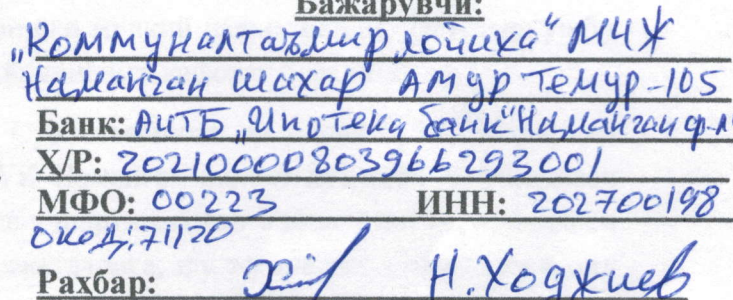 Бажарувчи:
„Коммуналтаъмир лойиха" МЧЖ
Наманган шахар Амур Темур-105
Банк: АИТБ „Ипотека банк" Наманган ф-л
Х/Р: 20210000803966293001
МФО: 00223 ИНН: 202700198
ОКЭД: 71120
Раҳбар: Н.Ходжиев